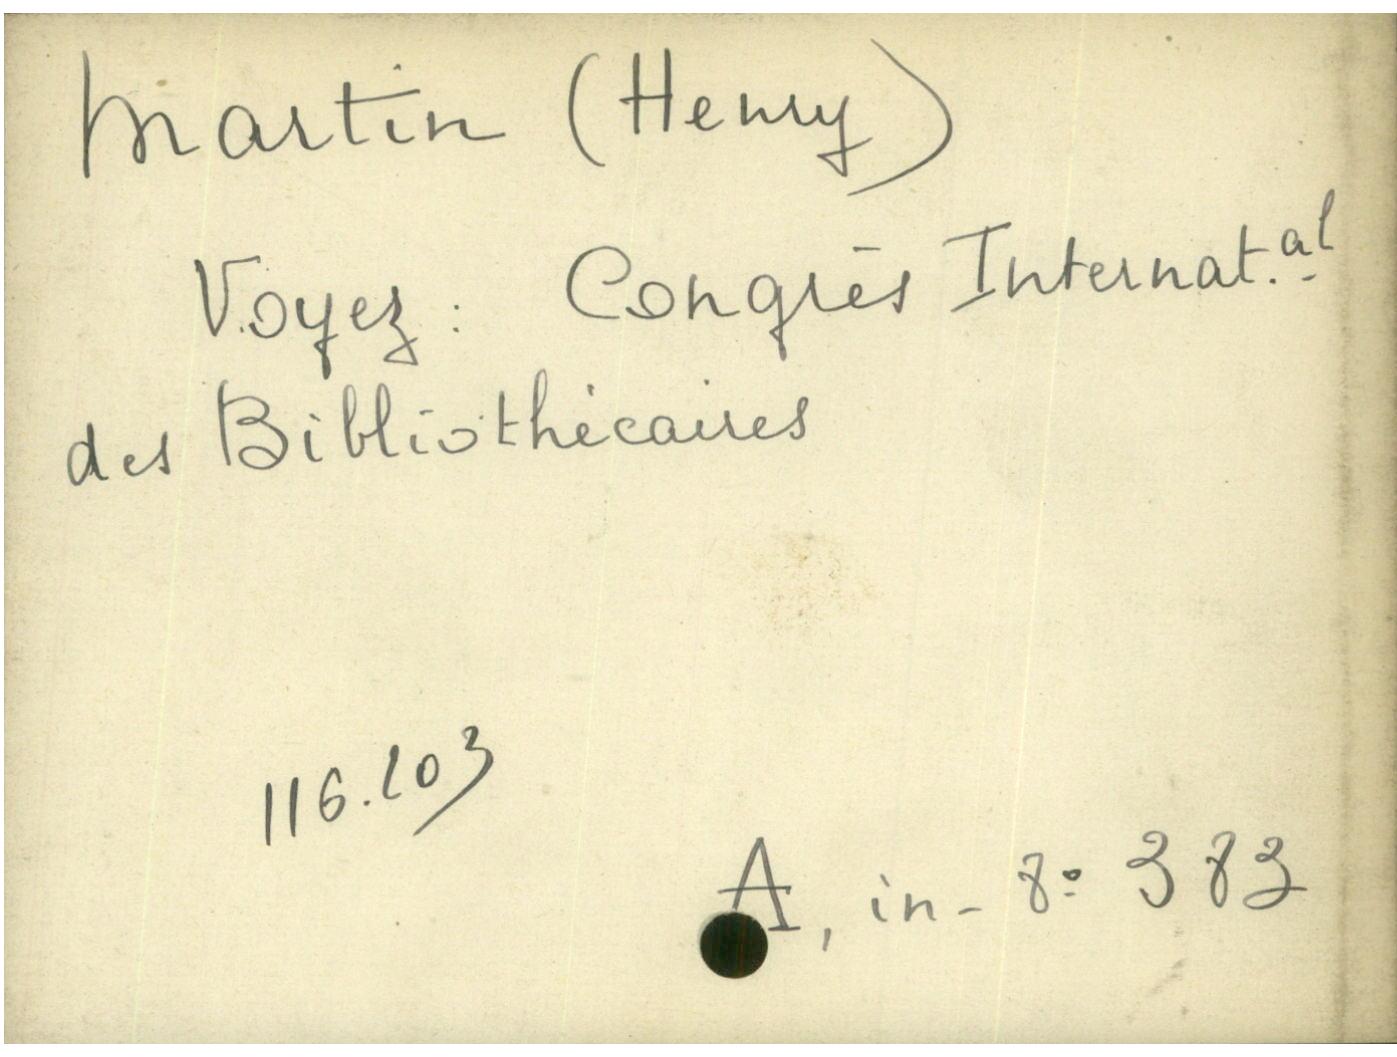 Martin (Henry)
Voyez : Congrès Internat.al
des Bibliothécaires
116.103
A, in-8º 383